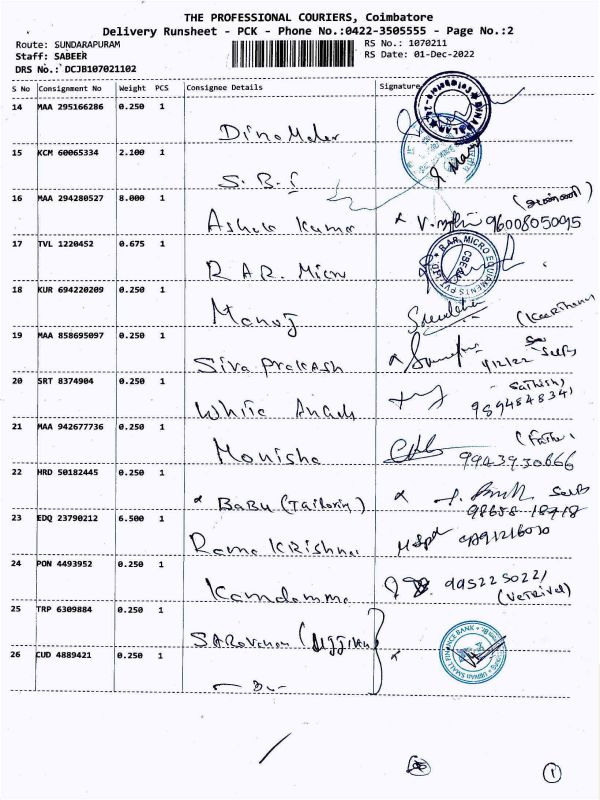 THE PROFESSIONAL COURIERS, Coimbatore
Delivery Runsheet - PCK - Phone No.:0422-3505555 - Page No.:2
Route: SUNDARAPURAM RS No.: 1070211
Staff: SABEER RS Date: 01-Dec-2022
DRS No.: DCJB107021102
S No Consignment No Weight PCS Consignee Details Signature
14 MAA 295166286 0.250 1
Dina Malar
15 KCM 60065334 2.100 1
S.B.I
16 MAA 294280527 8.000 1
Ashok Kumar 9600805095
17 TVL 1220452 0.675 1
R.A.R. Micro
18 KUR 694220209 0.250 1
Manoj
19 MAA 858695097 0.250 1
Siva Prakash 1/12/22 Self
20 SRT 8374904 0.250 1
White Angels Sathish
21 MAA 942677736 0.250 1
Monisha (Father
22 HRD 50182445 0.250 1
Babu (Tailoring) Self
23 EDQ 23790212 6.500 1
Rama Krishnan
24 PON 4493952 0.250 1
Kandamma 9952250221
(Vetrivel)
25 TRP 6309884 0.250 1
Saravanan (Ujjivan
26 CUD 4889421 0.250 1